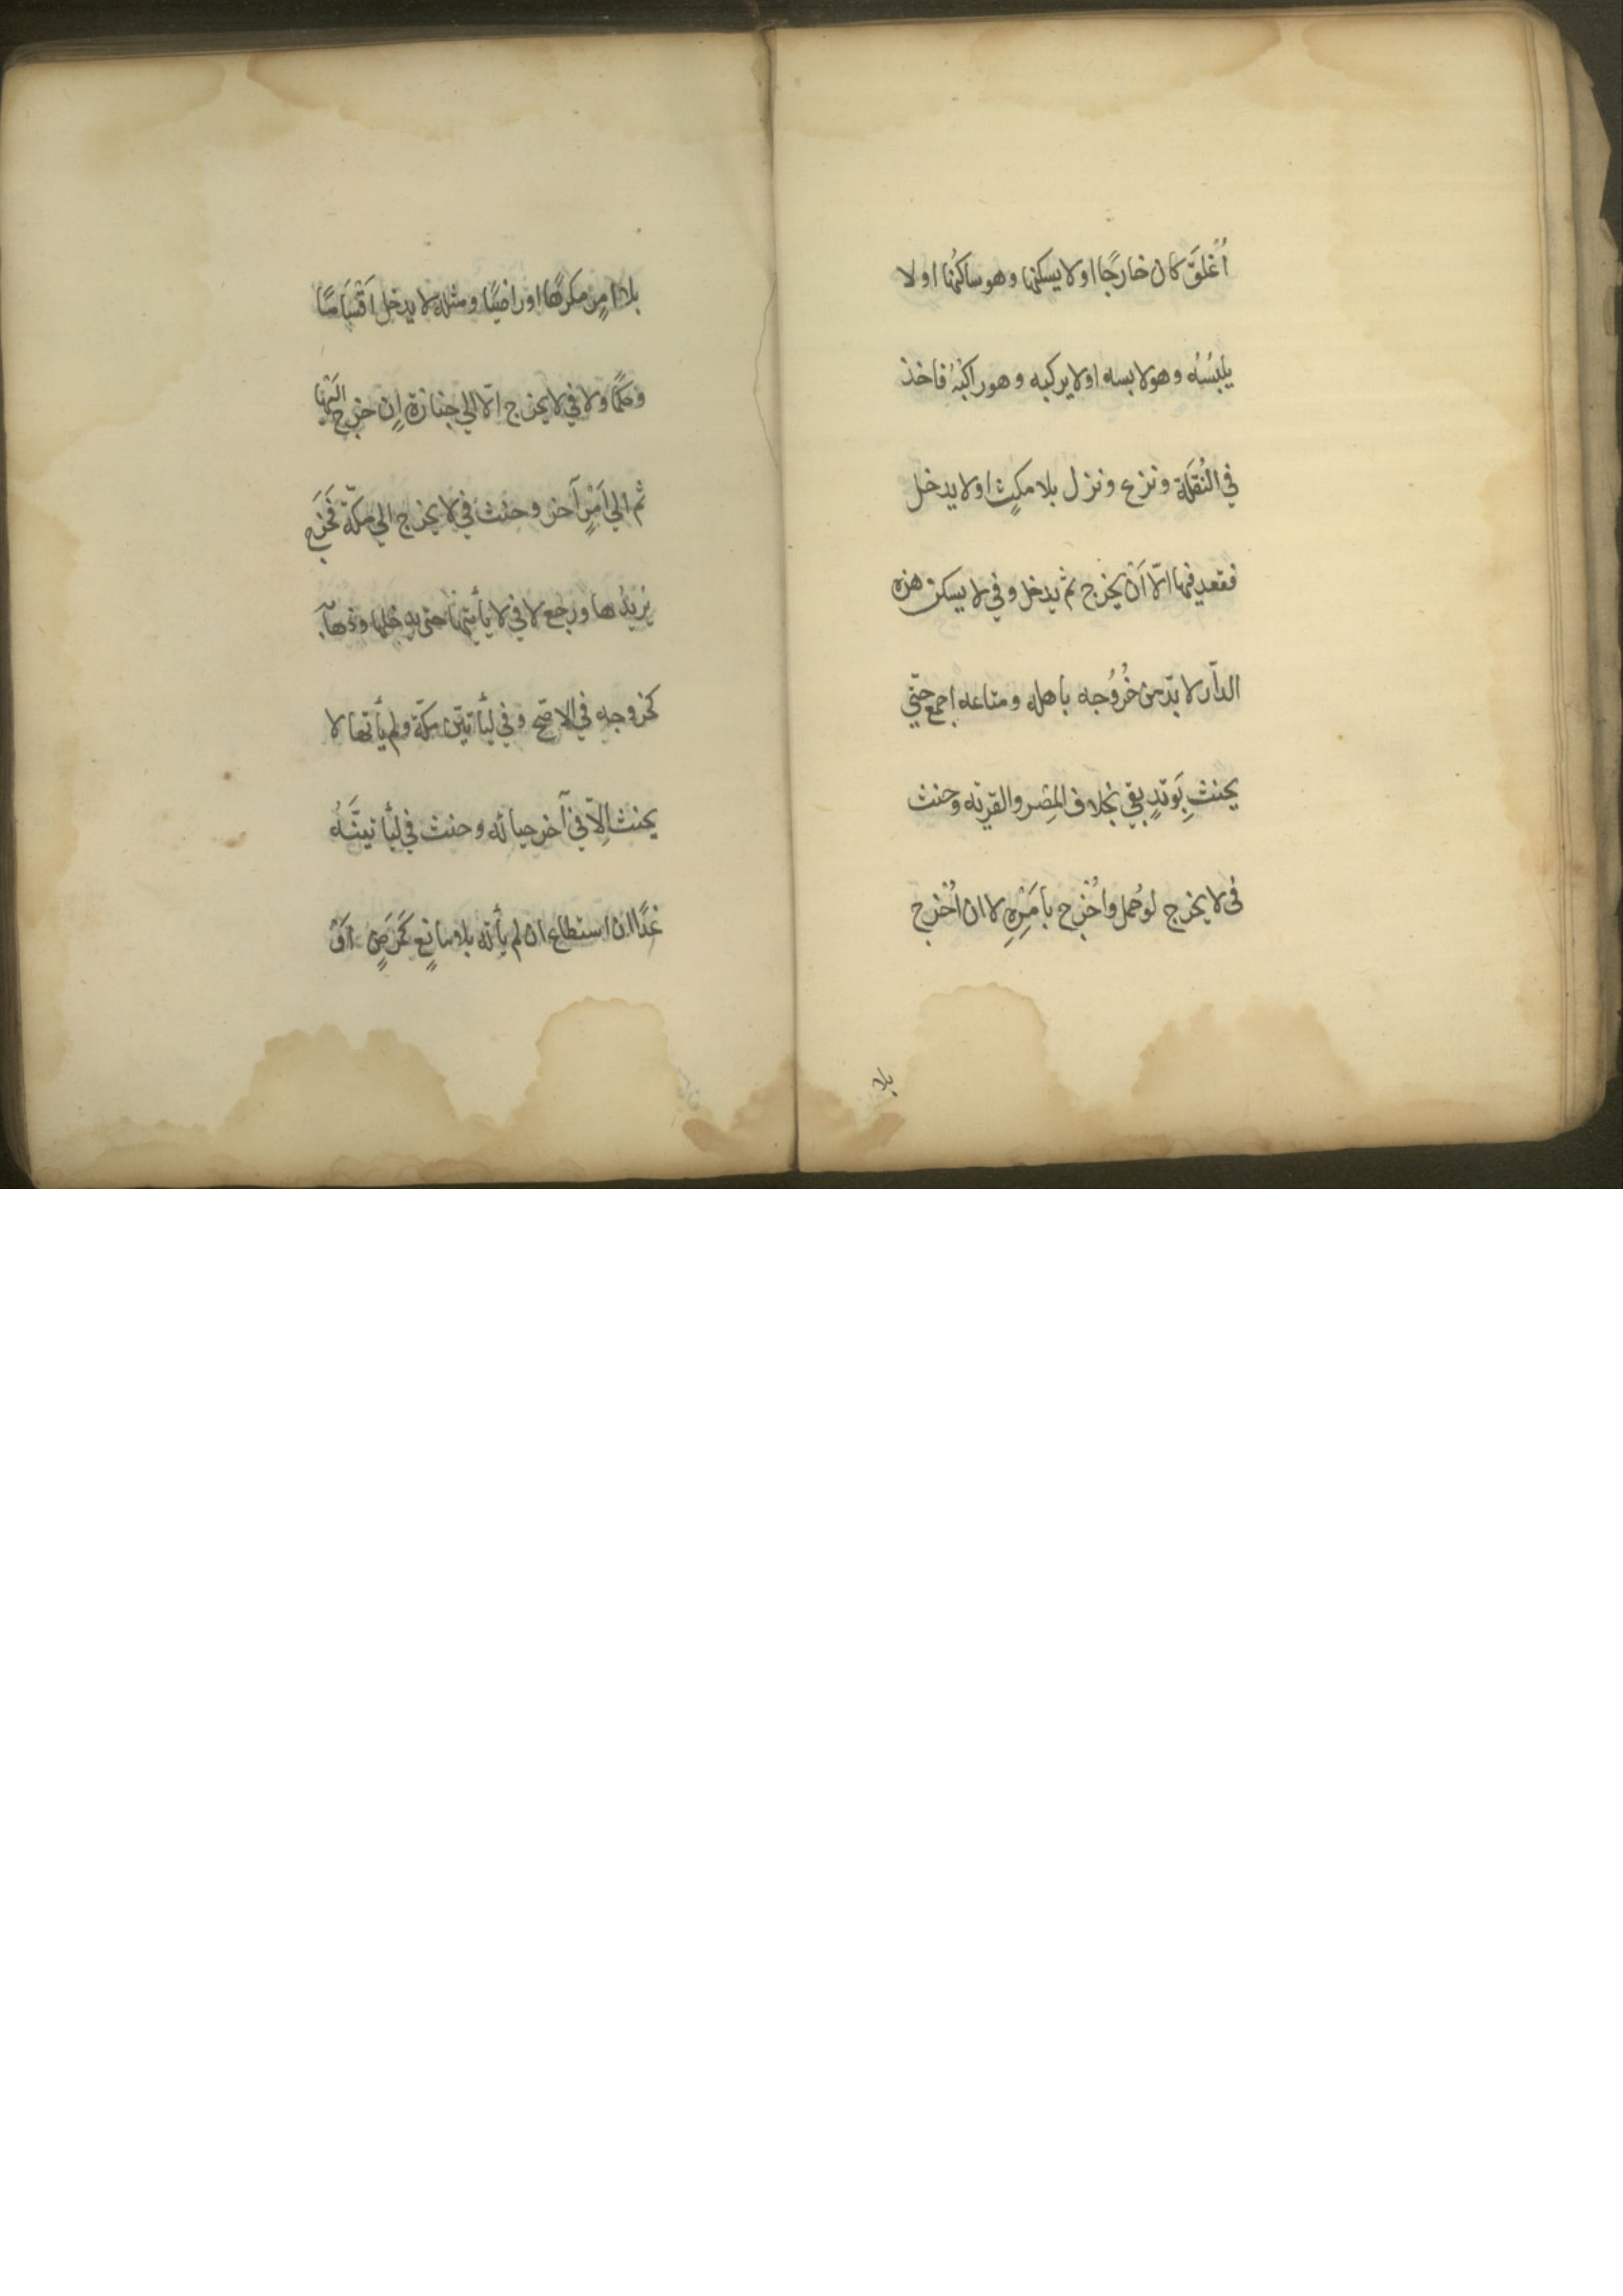 أُغلَقَ كان خارجًا او لا يسكنها وهو ساكنُها او لا
يلبسُه وهو لابسه او لا يركبه وهو راكبُهُ فاخذ
في النُقلَة ونزع ونزل بلا مكثٍ او لا يدخل
فقعد فيها الّا اَنْ يخرج ثم يدخل وفي لا يسكن هذه
الدّار لا بدّ من خُرُوُجه باهله ومتاعه اجمع حتّي
يحنث بِوَتدٍ بقي بخلاف المِصْر والقرية وحنث
في لا يخرج لو حُمل واُخْرِج باَمْرِهِ لا ان اُخْرِج
بلا
بلا امرٍ مكرهًا او راضيًا ومثله لا يدخل اَقْسَامًا
وحكمًا ولا في لا يخرج الّا الي جنازة اِن خرج اليْها
ثم الي اَمْرٍ آخر وحنث في لا يخرج الي مكّة فَخَرَج
يريدُها ورجع لا في لا يأتيها حتي يدخلها وذهابُه
كخروجه في الاصّح وفي ليأتيّن مكّة ولم يأتها لا
يحنث اِلّا في آخر حياته وحنث في ليأتينَّهُ
غدًا ان استطاع ان لم يأته بلا مانعٍ كمَرَضٍ اَوْ